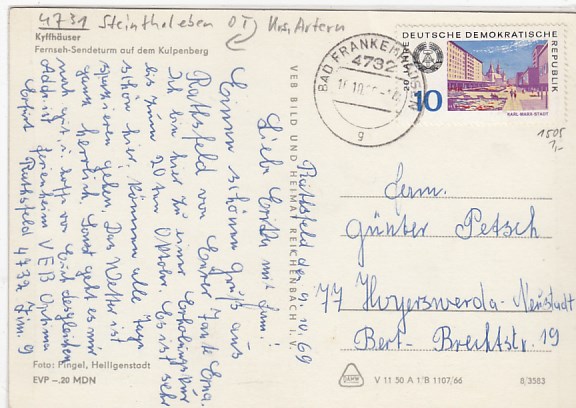 4731 Steinthaleben OT) Krs. Artern
Kyffhäuser
Fernseh-Sendeturm auf dem Kulpenberg
Rathsfeld den 9.10.69
Liebe Erika mit Fam.!
Einen schönen Gruß aus
Rathsfeld von Eurer Tante Erna.
Ich bin hier zu einer Erholungskur
bis zum 20ten Oktober. Es ist sehr
schön hier, können alle Tage
spazieren gehen. Das Wetter ist
ganz herrlich. Sonst geht es mir
noch gut u. hoffe von Euch desgleichen
Adr. ist Ferienheim VEB Optima
Erfurt Rathsfeld 4732 Zim. 9
Foto: Pingel, Heiligenstadt
EVP -.20 MDN
VEB BILD UND HEIMAT REICHENBACH I. V.
BAD FRANKENHAUSEN
4732
g
DEUTSCHE DEMOKRATISCHE
REPUBLIK
20 JAHRE DDR
10
KARL-MARX-STADT
1505
1,-
Fam.
Günter Petsch
77 Hoyerswerda-Neustadt
Bert-Brechtstr. 19
V 11 50 A 1/B 1107/66
8/3583